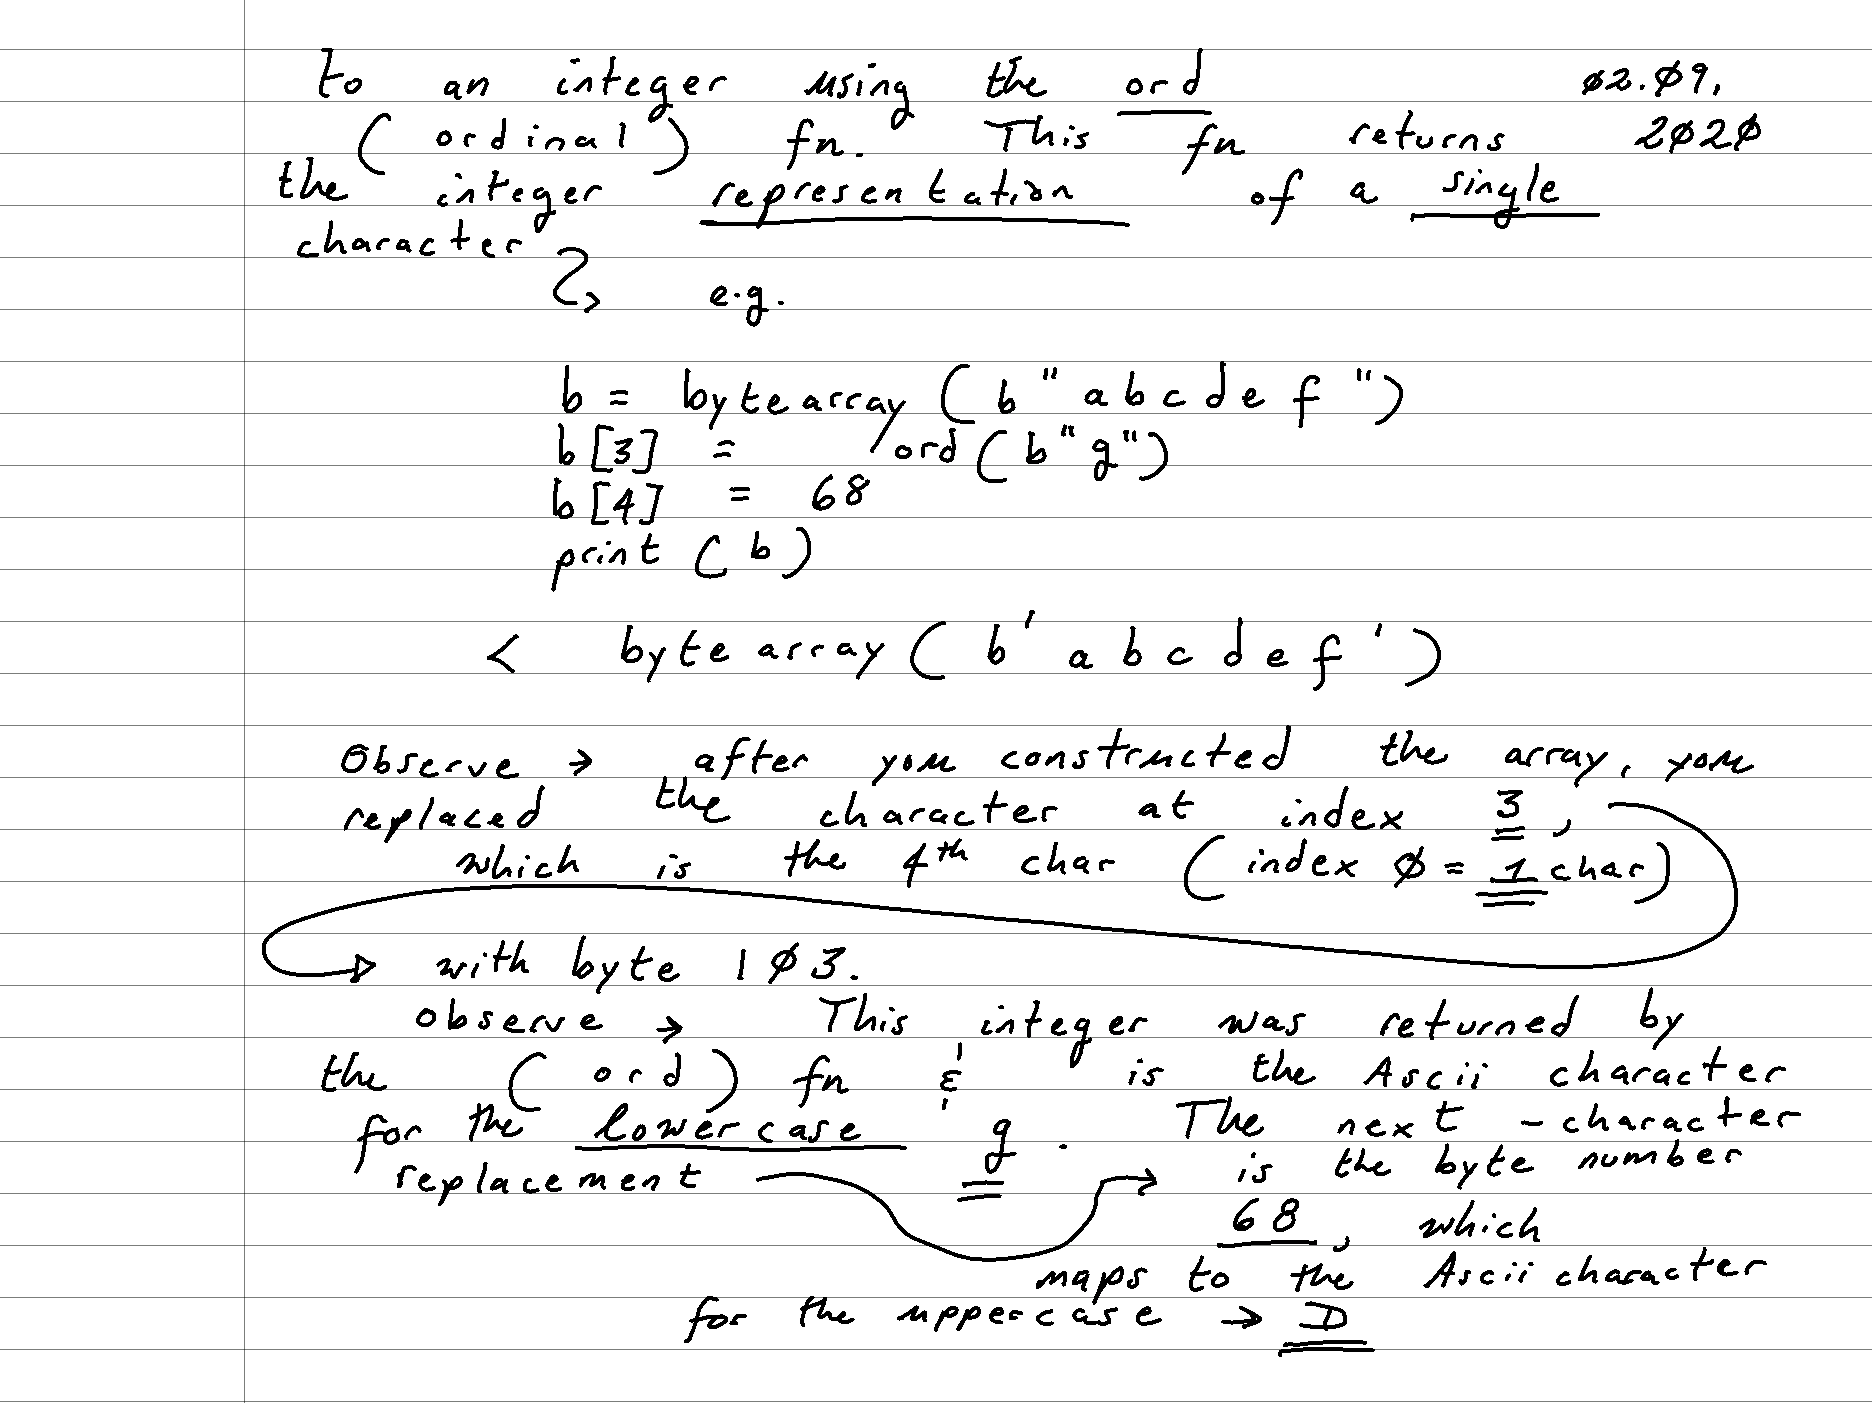 to an integer using the ord 02.09,
(ordinal) fn. This fn returns 2020
the integer representation of a single
character
e.g.
b = bytearray(b"abcdef")
b[3] = ord(b"g")
b[4] = 68
print(b)
< bytearray(b'abcdef')
Observe → after you constructed the array, you
replaced the character at index 3,
which is the 4th char (index 0 = 1 char)
with byte 103.
observe → This integer was returned by
the (ord) fn & is the Ascii character
for the lowercase g. The next-character
replacement → is the byte number
68, which
maps to the Ascii character
for the uppercase → D